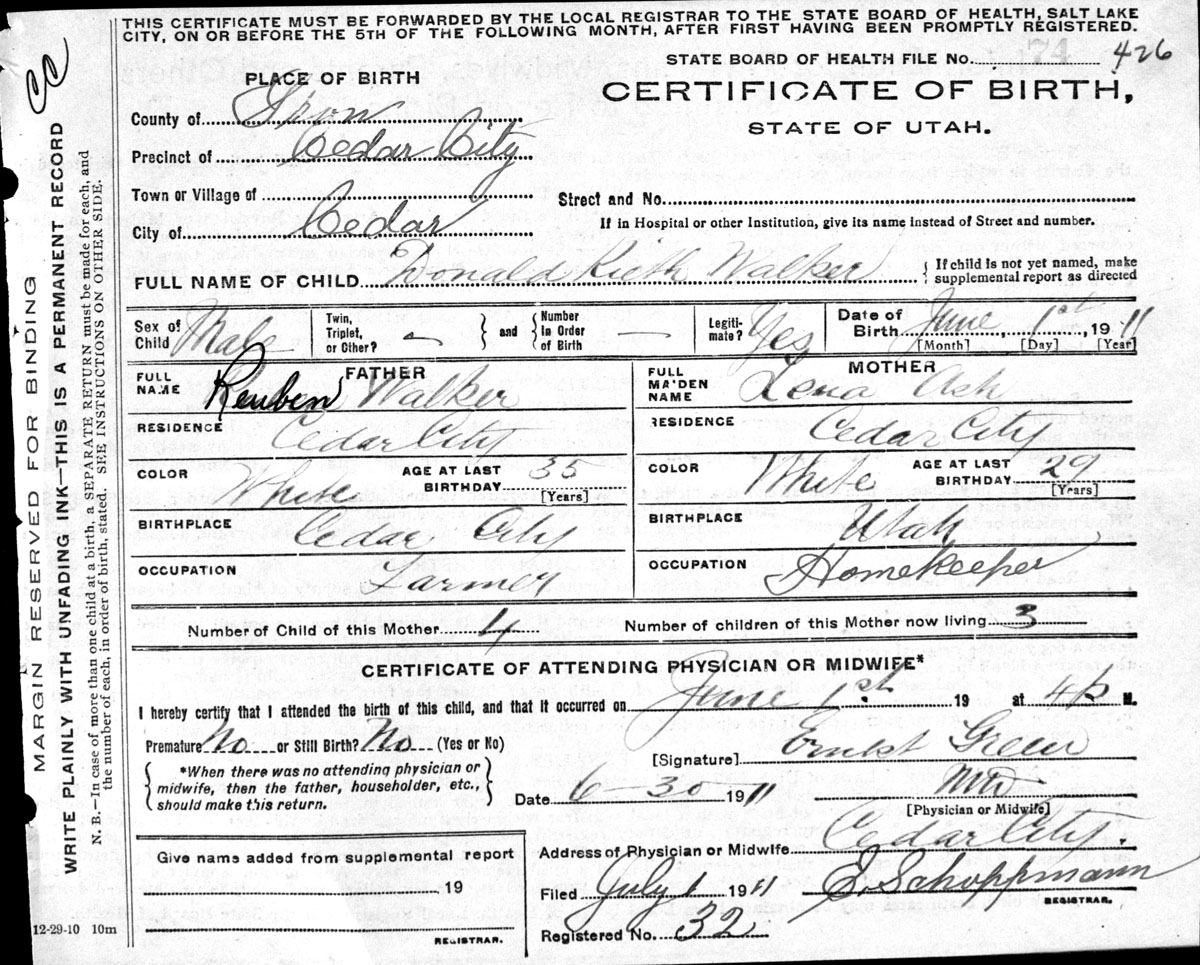 THIS CERTIFICATE MUST BE FORWARDED BY THE LOCAL REGISTRAR TO THE STATE BOARD OF HEALTH, SALT LAKE
CITY, ON OR BEFORE THE 5TH OF THE FOLLOWING MONTH, AFTER FIRST HAVING BEEN PROMPTLY REGISTERED.
CC
MARGIN RESERVED FOR BINDING
WRITE PLAINLY WITH UNFADING INK—THIS IS A PERMANENT RECORD
N. B.—In case of more than one child at a birth, a SEPARATE RETURN must be made for each, and
the number of each, in order of birth, stated. SEE INSTRUCTIONS ON OTHER SIDE.
STATE BOARD OF HEALTH FILE No. 426
PLACE OF BIRTH
CERTIFICATE OF BIRTH,
STATE OF UTAH.
County of Iron
Precinct of Cedar City
Town or Village of
Street and No.
City of Cedar
If in Hospital or other Institution, give its name instead of Street and number.
FULL NAME OF CHILD Donald Kieth Walker { If child is not yet named, make
supplemental report as directed
Sex of Child Male
Twin, Triplet, or Other? —
and
Number in Order of Birth —
Legitimate? Yes
Date of Birth June 1st 1911
[Month] [Day] [Year]
FATHER
FULL NAME Reuben Walker
RESIDENCE Cedar City
COLOR White AGE AT LAST BIRTHDAY 35 [Years]
BIRTHPLACE Cedar City
OCCUPATION Farmer
MOTHER
FULL MAIDEN NAME Lena Ash
RESIDENCE Cedar City
COLOR White AGE AT LAST BIRTHDAY 29 [Years]
BIRTHPLACE Utah
OCCUPATION Homekeeper
Number of Child of this Mother 4 Number of children of this Mother now living 3
CERTIFICATE OF ATTENDING PHYSICIAN OR MIDWIFE*
I hereby certify that I attended the birth of this child, and that it occurred on June 1st 19 at 4 p M.
Premature No or Still Birth? No (Yes or No)
[Signature] Ernest Green
{ *When there was no attending physician or
midwife, then the father, householder, etc.,
should make this return. }
Date 6-30 1911 MD
[Physician or Midwife]
Address of Physician or Midwife Cedar City.
Give name added from supplemental report
19
REGISTRAR.
Filed July 1 1911 E. Schoppmann
REGISTRAR.
Registered No. 32
12-29-10 10m